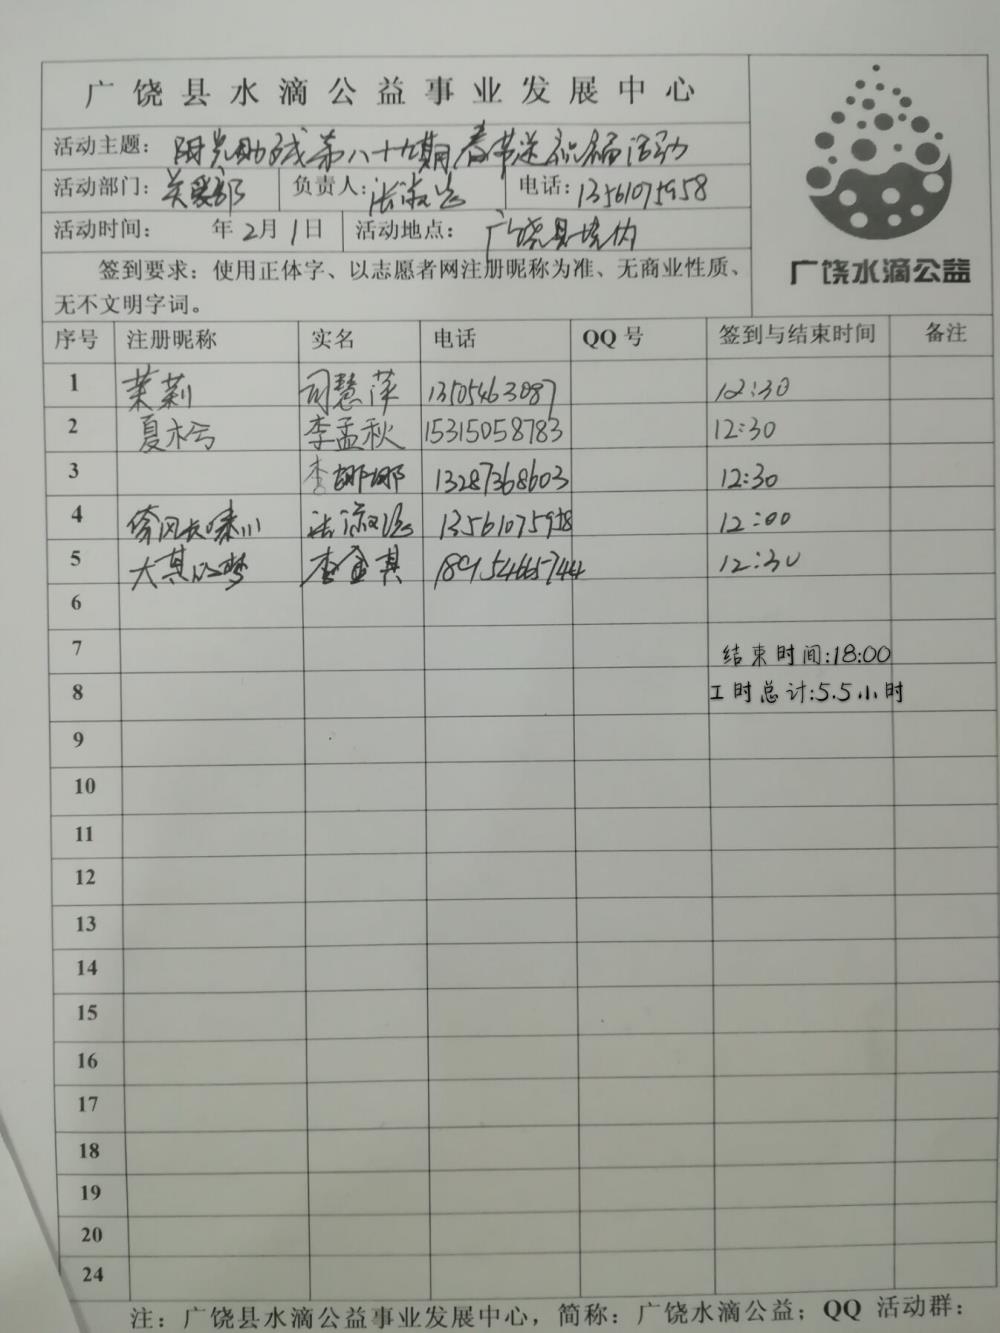 广饶县水滴公益事业发展中心
活动主题：阳光助残第八十九期春节送祝福活动
活动部门：关爱部 负责人：法淑 电话：13561075958
活动时间： 年2月1日 活动地点：广饶县境内
签到要求：使用正体字、以志愿者网注册昵称为准、无商业性质、
无不文明字词。
广饶水滴公益
序号 注册昵称 实名 电话 QQ号 签到与结束时间 备注
1 茉莉 司慧萍 13505463087 12:30
2 夏木兮 李孟秋 15315058783 12:30
3 李娜娜 13287368603 12:30
4 法淑 13561075958 12:00
5 大其 李金其 18954665744 12:30
6
7 结束时间:18:00
8 工时总计:5.5小时
9
10
11
12
13
14
15
16
17
18
19
20
24
注：广饶县水滴公益事业发展中心，简称：广饶水滴公益；QQ 活动群：